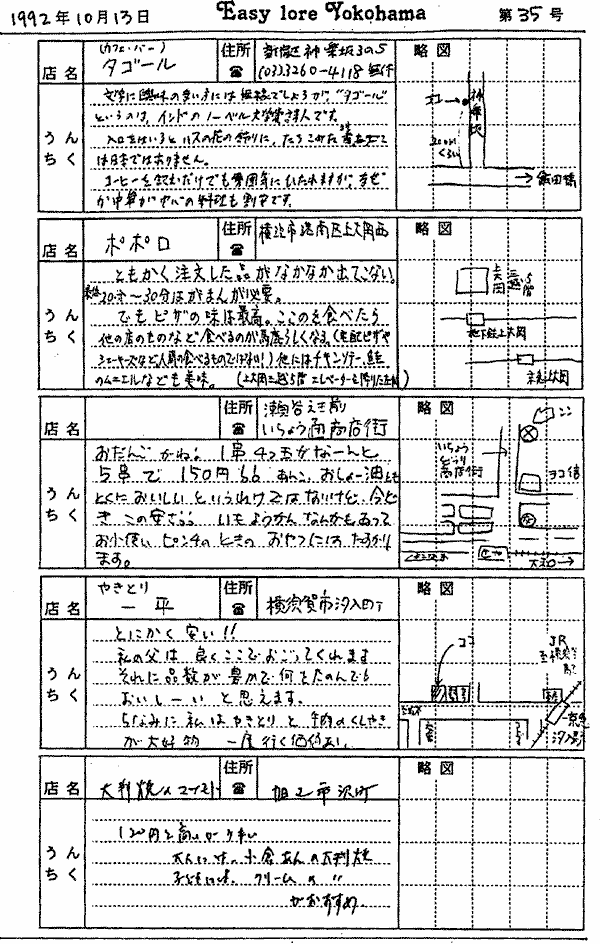 1992年10月13日 Easy lore Yokohama 第35号
(カフェ・バー)
店名 タゴール 住所 ☎ 新宿区神楽坂3の5
(03)3260-4118 無休
略図
うんちく
文学に興味の多い方には短絡でしょうが、"タゴール"
というのは、インドのノーベル大学賞詩人です。
入口をはいるとハスの花の飾りに、たちこめた香
は日本ではありません。
コーヒーを飲むだけでも雰囲気にひたれますが、
料理も
神楽坂
ココ
20mくらい
飯田橋
店名 ポポロ 住所 ☎ 横浜市港南区上大岡西
略図
うんちく
ともかく注文した品がなかなか出てこない。
20分〜30分はがまんが必要。
でもピザの味は最高。ここのを食べたら
他の店のものなど食べるのが馬鹿らしくなる。(宅配ピザや
シェーキーズなど人間の食べるものではない!)他にはチキンソテー、鮭
のムニエルなども美味。(上大岡三越5階 エレベーターを降りた左側)
上大岡三越5階
地下鉄上大岡
京急上大岡
店名 住所 ☎ 瀬谷えき前
いちょう通商店街
略図
うんちく
おだんごかね。1串4つ玉がなーんと
5串で150円
あんこ、おしょー油とも
とくにおいしいというわけではないけど、今ど
きこの安さ
いもようかんなんかもあって
お小使いピンチのときのおやつには たすかり
ます。
ココ
いちょうどうり商店街
ヨコ信
店名 やきとり
一平 住所 ☎ 横須賀市汐入町
略図
うんちく
とにかく安い!!
私の父は良くここでおごってくれます
それに品数が豊かで何をたのんでも
おいしーいと思えます。
ちなみに私はやきとりと牛肉のくしやき
が大好物 一度行く価値あり。
ココ
JR
京急
汐入駅
店名 大判焼 住所 ☎ 旭区市沢町
略図
うんちく
120円と高いが
大人には、小倉あんの大判焼
子どもには、クリームの 〃
がおすすめ。